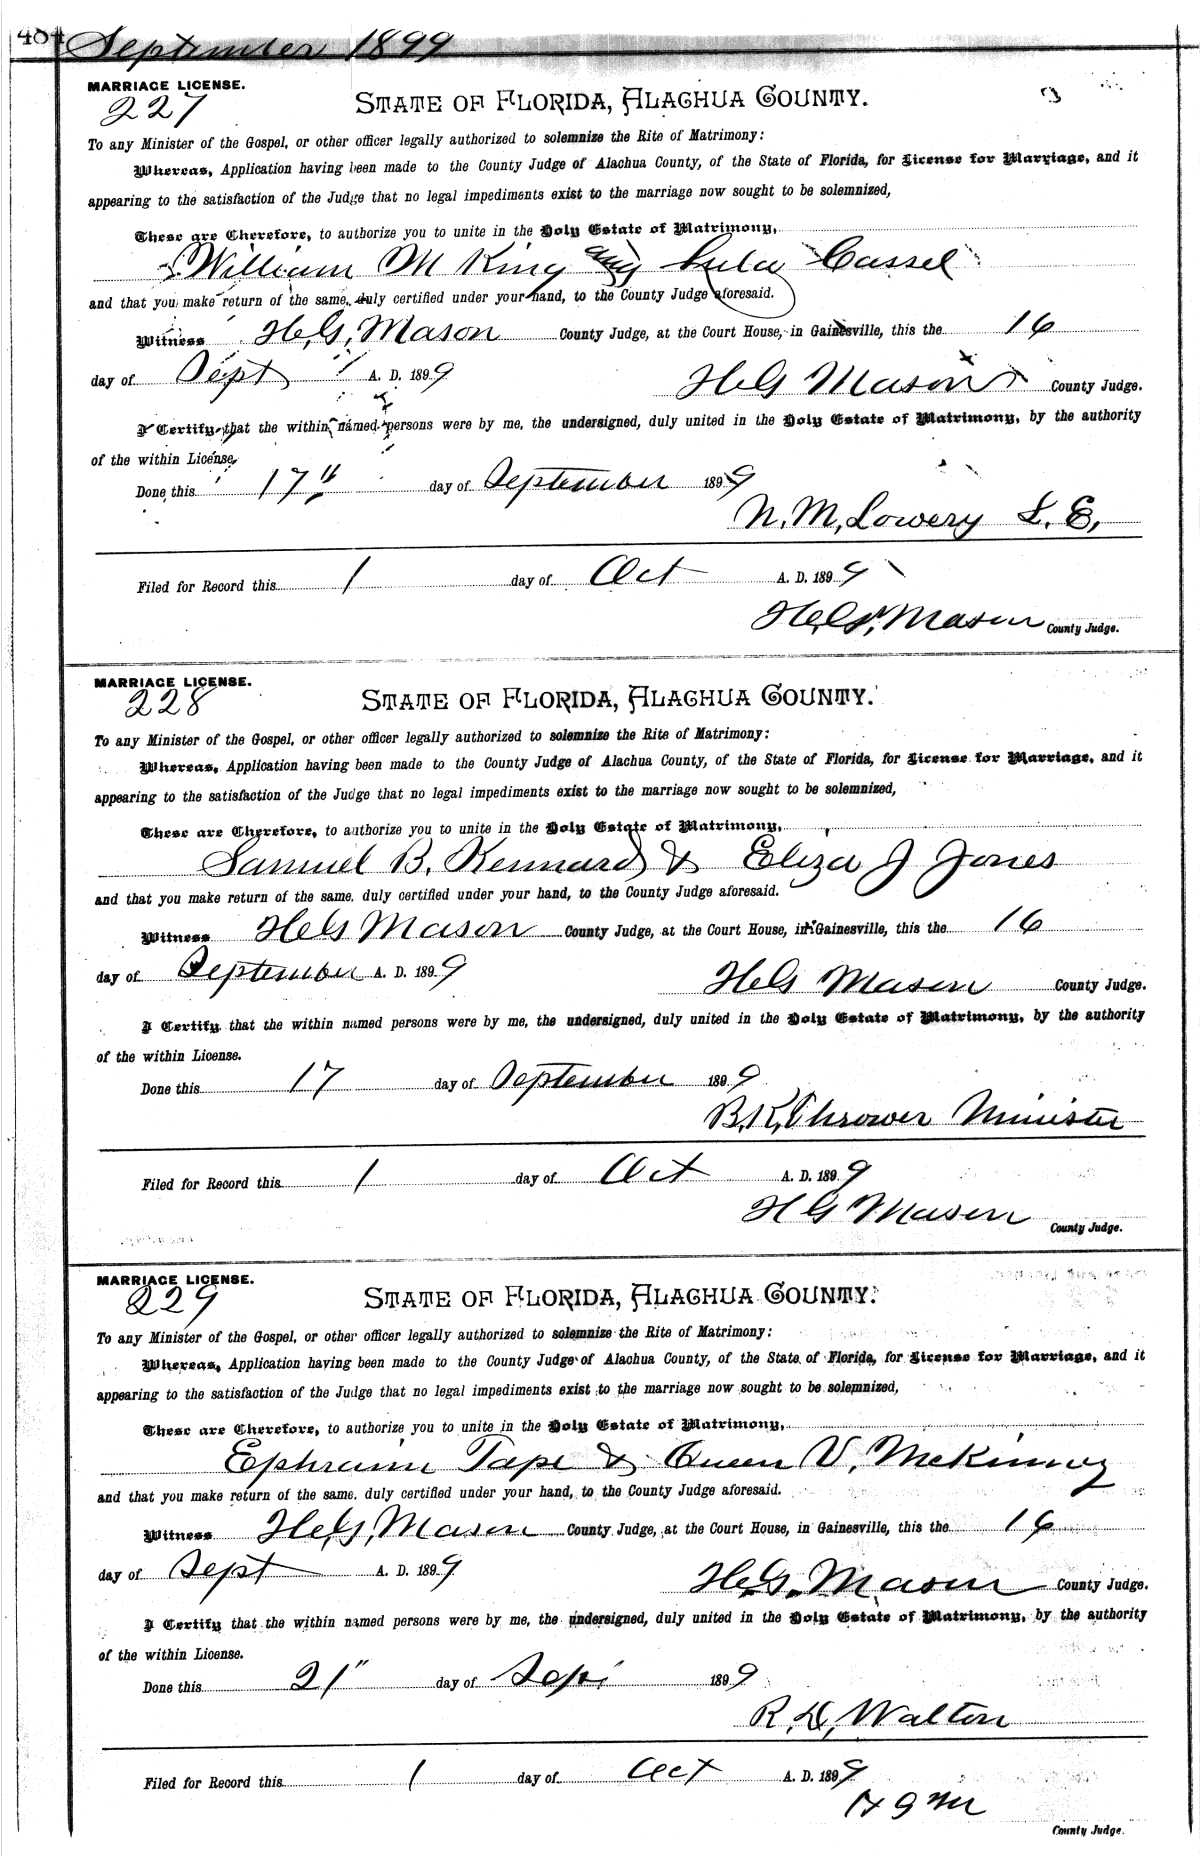 484 September 1899
MARRIAGE LICENSE.
227
STATE OF FLORIDA, ALACHUA COUNTY.
To any Minister of the Gospel, or other officer legally authorized to solemnize the Rite of Matrimony:
Whereas, Application having been made to the County Judge of Alachua County, of the State of Florida, for License for Marriage, and it
appearing to the satisfaction of the Judge that no legal impediments exist to the marriage now sought to be solemnized,
These are Therefore, to authorize you to unite in the Holy Estate of Matrimony,
William M King and Lula Cassel
and that you make return of the same, duly certified under your hand, to the County Judge aforesaid.
Witness H, G, Mason County Judge, at the Court House, in Gainesville, this the 16
day of Sept A. D. 1899 H G Mason County Judge.
I Certify that the within named persons were by me, the undersigned, duly united in the Holy Estate of Matrimony, by the authority
of the within License.
Done this 17th day of September 1899
N. M, Lowery L. E,
Filed for Record this 1 day of Oct A. D. 1899
H, G, Mason County Judge.
MARRIAGE LICENSE.
228
STATE OF FLORIDA, ALACHUA COUNTY.
To any Minister of the Gospel, or other officer legally authorized to solemnize the Rite of Matrimony:
Whereas, Application having been made to the County Judge of Alachua County, of the State of Florida, for License for Marriage, and it
appearing to the satisfaction of the Judge that no legal impediments exist to the marriage now sought to be solemnized,
These are Therefore, to authorize you to unite in the Holy Estate of Matrimony,
Samuel B. Kennard & Eliza J Jones
and that you make return of the same, duly certified under your hand, to the County Judge aforesaid.
Witness H G Mason County Judge, at the Court House, in Gainesville, this the 16
day of September A. D. 1899 H G Mason County Judge.
I Certify that the within named persons were by me, the undersigned, duly united in the Holy Estate of Matrimony, by the authority
of the within License.
Done this 17 day of September 1899
B, K, Thrower Minister
Filed for Record this 1 day of Oct A. D. 1899
H G Mason
County Judge.
MARRIAGE LICENSE.
229
STATE OF FLORIDA, ALACHUA COUNTY.
To any Minister of the Gospel, or other officer legally authorized to solemnize the Rite of Matrimony:
Whereas, Application having been made to the County Judge of Alachua County, of the State of Florida, for License for Marriage, and it
appearing to the satisfaction of the Judge that no legal impediments exist to the marriage now sought to be solemnized,
These are Therefore, to authorize you to unite in the Holy Estate of Matrimony,
Ephraim Tape & Queen V, McKinney
and that you make return of the same, duly certified under your hand, to the County Judge aforesaid.
Witness H, G, Mason County Judge, at the Court House, in Gainesville, this the 16
day of Sept A. D. 1899 H. G. Mason County Judge.
I Certify that the within named persons were by me, the undersigned, duly united in the Holy Estate of Matrimony, by the authority
of the within License.
Done this 21" day of Sept 1899
R, D, Walton
Filed for Record this 1 day of Oct A. D. 1899
H G M
County Judge.